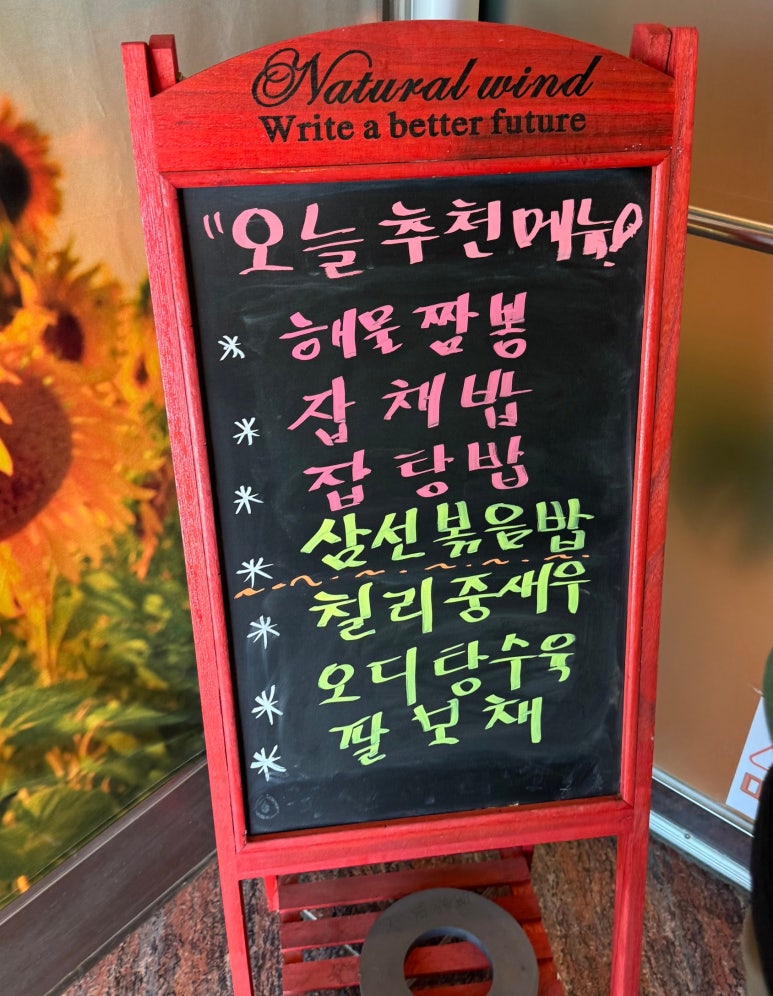 Natural wind
Write a better future
"오늘 추천메뉴
* 해물짬뽕
* 잡채밥
* 잡탕밥
* 삼선볶음밥
* 칠리중새우
* 오디탕수육
* 팔보채